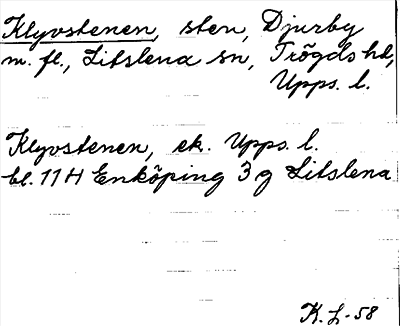 Klyvstenen, sten, Djurby
m. fl., Litslena sn, Trögds hd,
Upps. l.
Klyvstenen, ek. Upps. l.
bl. 11 H Enköping 3 g Litslena
K. L. -58